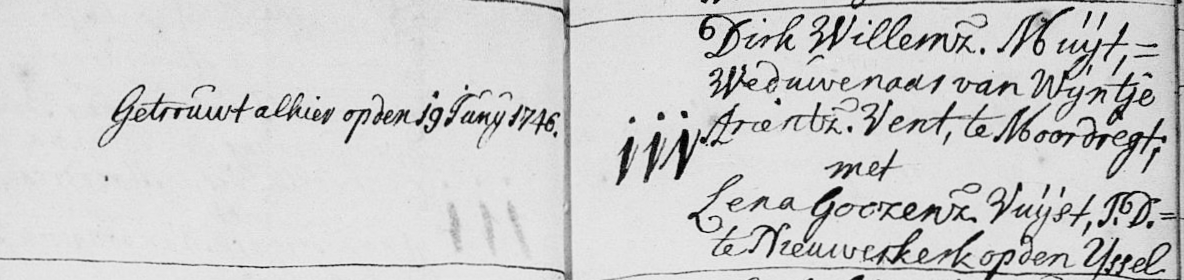 Getrouwt alhier op den 19 Juny 1746.
Dirk Willemsz. Muÿt,=
Weduwenaar van Wyntje
iij Ariensz. Vent, te Moordregt;
met
Lena Goozensz. Vuÿst, J.D.=
te Nieuwerkerk op den Yssel